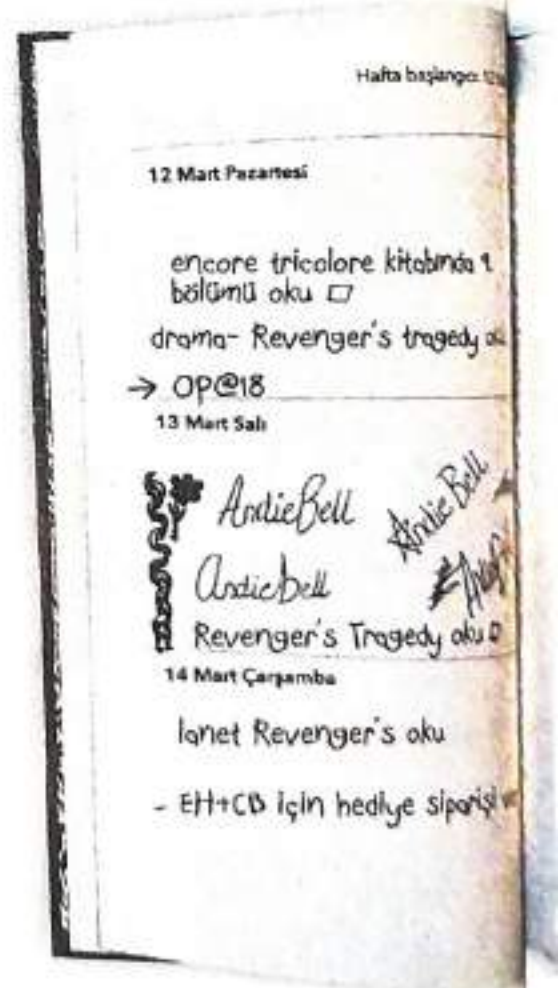 Hafta başlangıcı 12
12 Mart Pazartesi
encore tricolore kitabında 9
bölümü oku
drama- Revenger's tragedy oku
→ OP@18
13 Mart Salı
Andie Bell
Andie Bell
Andie bell
Revenger's Tragedy oku
14 Mart Çarşamba
lanet Revenger's oku
- EH+CB için hediye siparişi